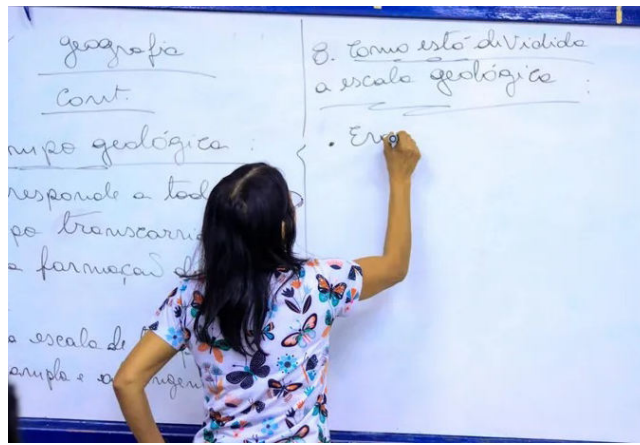 geografia
Cont.
geológica :
responde a tod
transcorri
a formação d
a escala de
ampla e a
8. Como está dividida
a escala geológica :
• Er